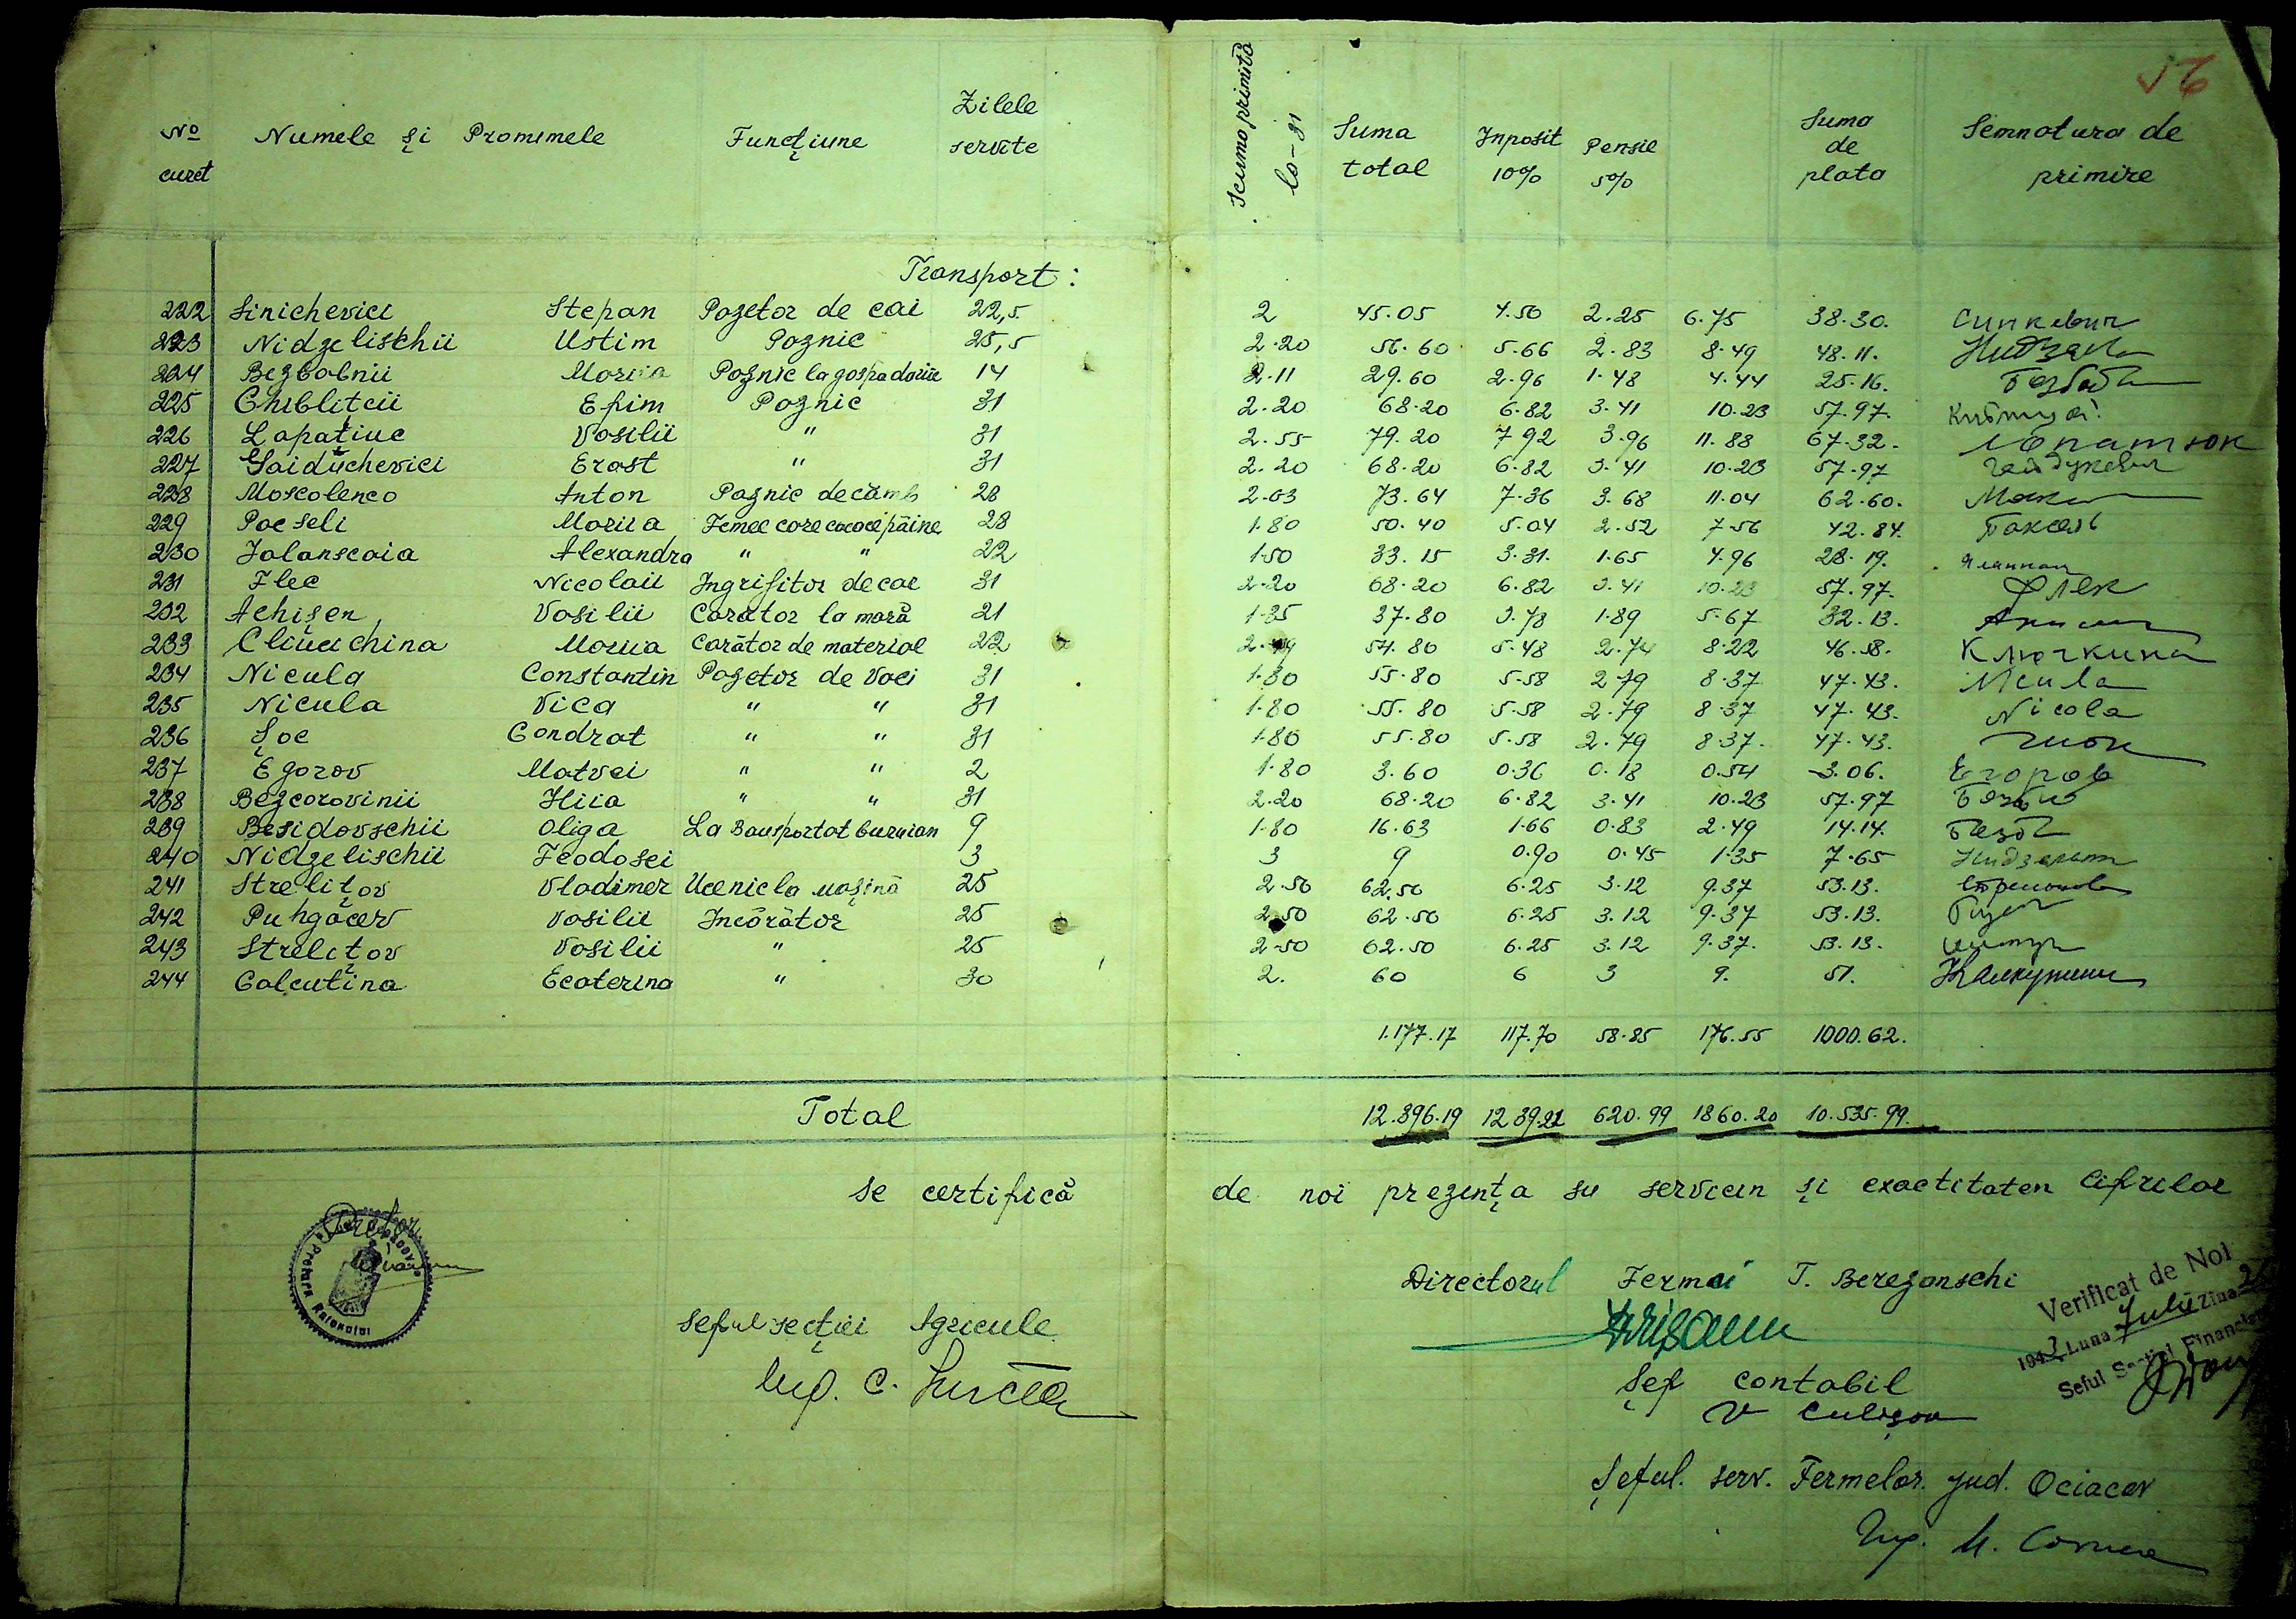 56
No curct Numele și Pronumele Funcţiune Zilele servite Scumo primită la-31 Suma total Inposit 10% Pensie 5% Suma de plata Semnatura de primire
Transport:
222 Sinichevici Stepan Pazetor de cai 22,5 2 45.05 4.50 2.25 6.75 38.30. Синкевич
223 Nidzelischii Ustim Paznic 25,5 2.20 56.60 5.66 2.83 8.49 48.11.
224 Bezbabnii Maria Paznic la gospadariie 14 2.11 29.60 2.96 1.48 4.44 25.16.
225 Chiblitcii Efim Paznic 31 2.20 68.20 6.82 3.41 10.23 57.97.
226 Lapaţiuc Vasilii " 31 2.55 79.20 7.92 3.96 11.88 67.32. Лопатюк
227 Gaiduchevici Erast " 31 2.20 68.20 6.82 3.41 10.23 57.97 Гайдукевич
228 Moscolenco Anton Paznic de cămb 28 2.63 73.64 7.36 3.68 11.04 62.60.
229 Pocseli Mariia Femee care cococe păine 28 1.80 50.40 5.04 2.52 7.56 42.84. Боксель
230 Jalanscaia Alexandra " " 22 1.50 33.15 3.31. 1.65 4.96 28.19.
231 Flec Nicolaii Ingrijitor de cai 31 2.20 68.20 6.82 3.41 10.23 57.97. Флек
232 Achișen Vasilii Carator la moră 21 1.85 37.80 3.78 1.89 5.67 32.13.
233 Cliucichina Mariia Carător de material 22 2.49 54.80 5.48 2.74 8.22 46.58. Ключкина
234 Nicula Constantin Pazetor de Vaci 31 1.80 55.80 5.58 2.79 8.37 47.43. Nicula
235 Nicula Vica " " 31 1.80 55.80 5.58 2.79 8.37 47.43. Nicola
236 Șoc Condrat " " 31 1.80 55.80 5.58 2.79 8.37. 47.43.
237 Egorov Matvei " " 2 1.80 3.60 0.36 0.18 0.54 3.06. Егоров
238 Bezcorovinii Iliia " " 31 2.20 68.20 6.82 3.41 10.23 57.97
239 Besidovschii Oliga La Transportat buruian 9 1.80 16.63 1.66 0.83 2.49 14.14.
240 Nidzelischii Feodosei 3 3 9 0.90 0.45 1.35 7.65
241 Streliţov Vladimer Ucenic la mașină 25 2.50 62.50 6.25 3.12 9.37 53.13.
242 Puhgăcev Vasilii Incărător 25 2.50 62.50 6.25 3.12 9.37 53.13.
243 Streliţov Vasilii " 25 2.50 62.50 6.25 3.12 9.37. 53.13.
244 Calcutina Ecaterina " 30 2. 60 6 3 9. 51.
1.177.17 117.70 58.85 176.55 1000.62.
Total 12.396.19 1239.21 620.99 1860.20 10.535.99.
se certifică de noi prezinţa su servicin și exactitaten Cifrilor
Pretor
Pretura Raionului
Directorul Fermei T. Berezanschi
Seful secţiei Agricule
Ing. C.
Șef contabil
V Culișov
Verificat de Noi
1943 Luna Julie Ziua
Seful Sectiei Financiare
Șeful. serv. Fermelor. jud. Ociacov
Ing. M.